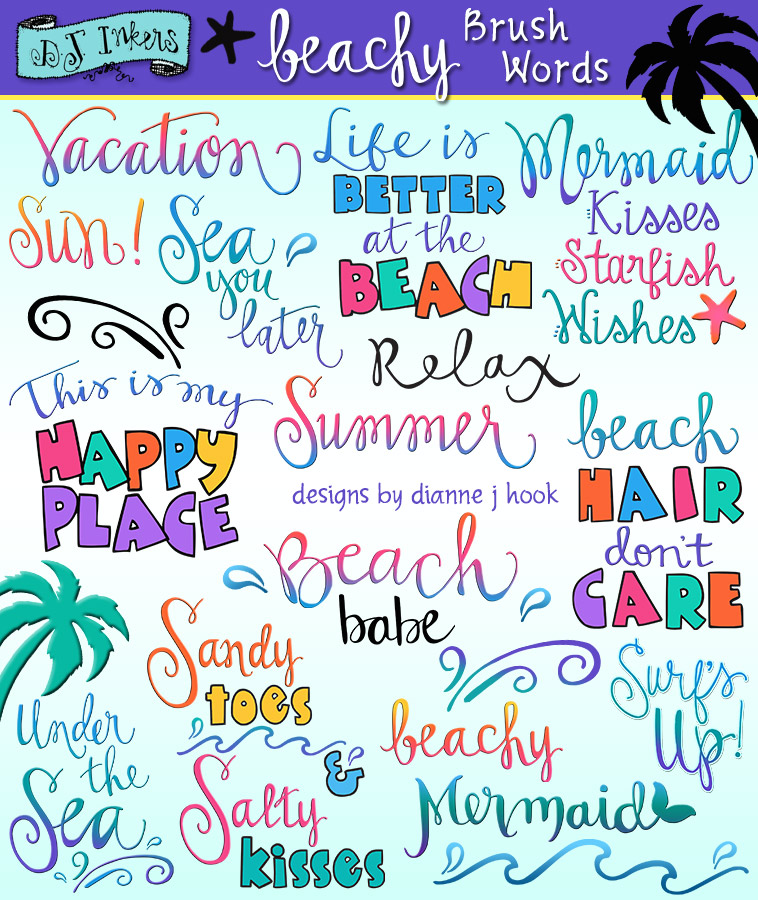 DJ Inkers
beachy
Brush
Words
Vacation
Life is
BETTER
at the
BEACH
Mermaid
Kisses
Starfish
Wishes
Sun!
Sea
you
later
Relax
This is my
HAPPY
PLACE
Summer
designs by dianne j hook
beach
HAIR
don't
CARE
Beach
babe
Sandy
toes
&
Salty
kisses
Under
the
Sea
beachy
Mermaid
Surf's
Up!